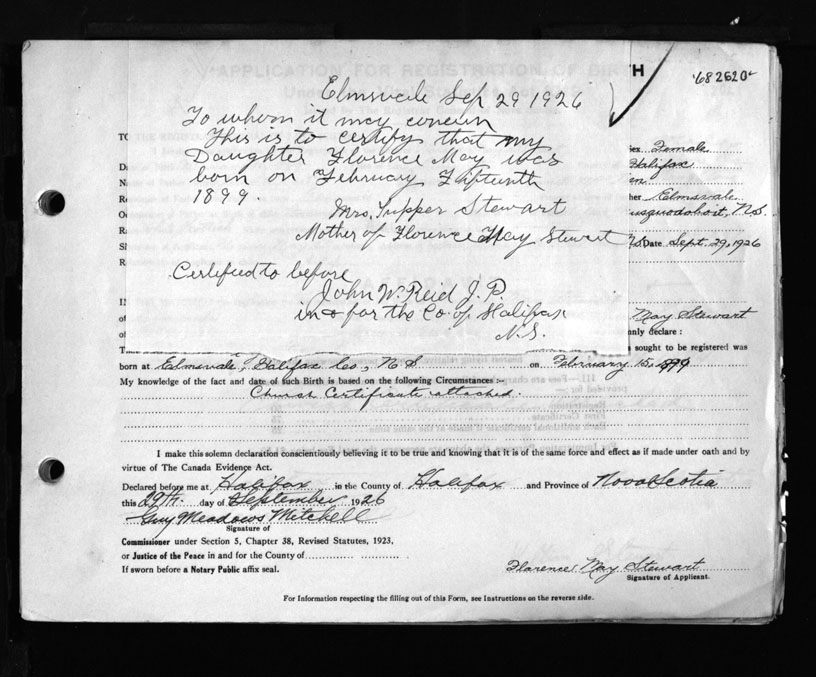 APPLICATION FOR REGISTRATION OF BIRTH
'682620'
Elmsvale Sep 29 1926
To whom it may concern
This is to certify that my
Daughter Florence May was
born on February Fifteenth
1899.
Mrs. Tupper Stewart
Mother of Florence May Stewart
Certified to before
John W. Reid J.P.
in & for the Co. of Halifax
N.S.
TO
Female
Halifax
her Elmsvale
usquodoboit, N.S.
Date Sept. 29, 1926
May Stewart
nly declare :
sought to be registered was
born at Elmsvale, Halifax Co., N S on February 15, 1899
My knowledge of the fact and date of such Birth is based on the following Circumstances :-
Church Certificate attached.
I make this solemn declaration conscientiously believing it to be true and knowing that it is of the same force and effect as if made under oath and by
virtue of The Canada Evidence Act.
Declared before me at Halifax in the County of Halifax and Province of Nova Scotia
this 29th. day of September 1926
Guy Meadows Mitchell
Signature of
Commissioner under Section 5, Chapter 38, Revised Statutes, 1923,
or Justice of the Peace in and for the County of
If sworn before a Notary Public affix seal.
Florence May Stewart
Signature of Applicant.
For Information respecting the filling out of this Form, see Instructions on the reverse side.